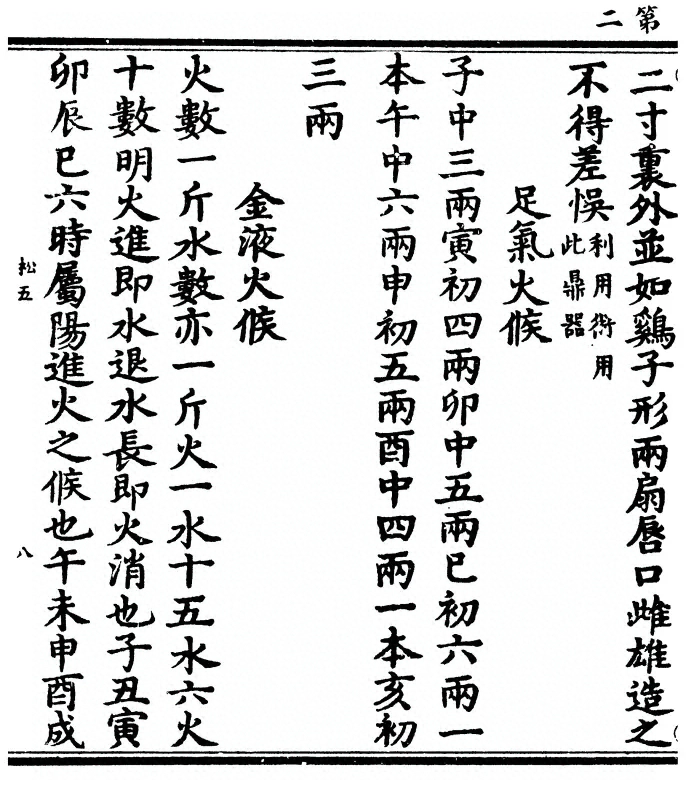 第二
二寸裏外並如鷄子形兩扇唇口雌雄造之
不得差悞利用衖用此鼎器
足氣火候
子中三兩寅初四兩卯中五兩巳初六兩一
本午中六兩申初五兩酉中四兩一本亥初
三兩
金液火候
火數一斤水數亦一斤火一水十五水六火
十數明火進即水退水長即火消也子丑寅
卯辰巳六時屬陽進火之候也午未申酉戌
松五
八